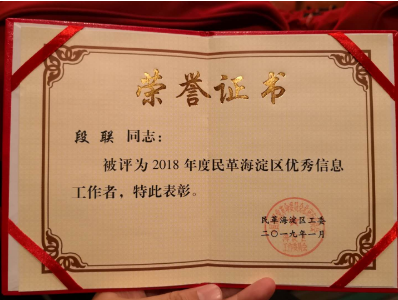 荣誉证书
段 联 同志：
被评为 2018 年度民革海淀区优秀信息
工作者，特此表彰。
民革海淀区工委
二〇一九年一月